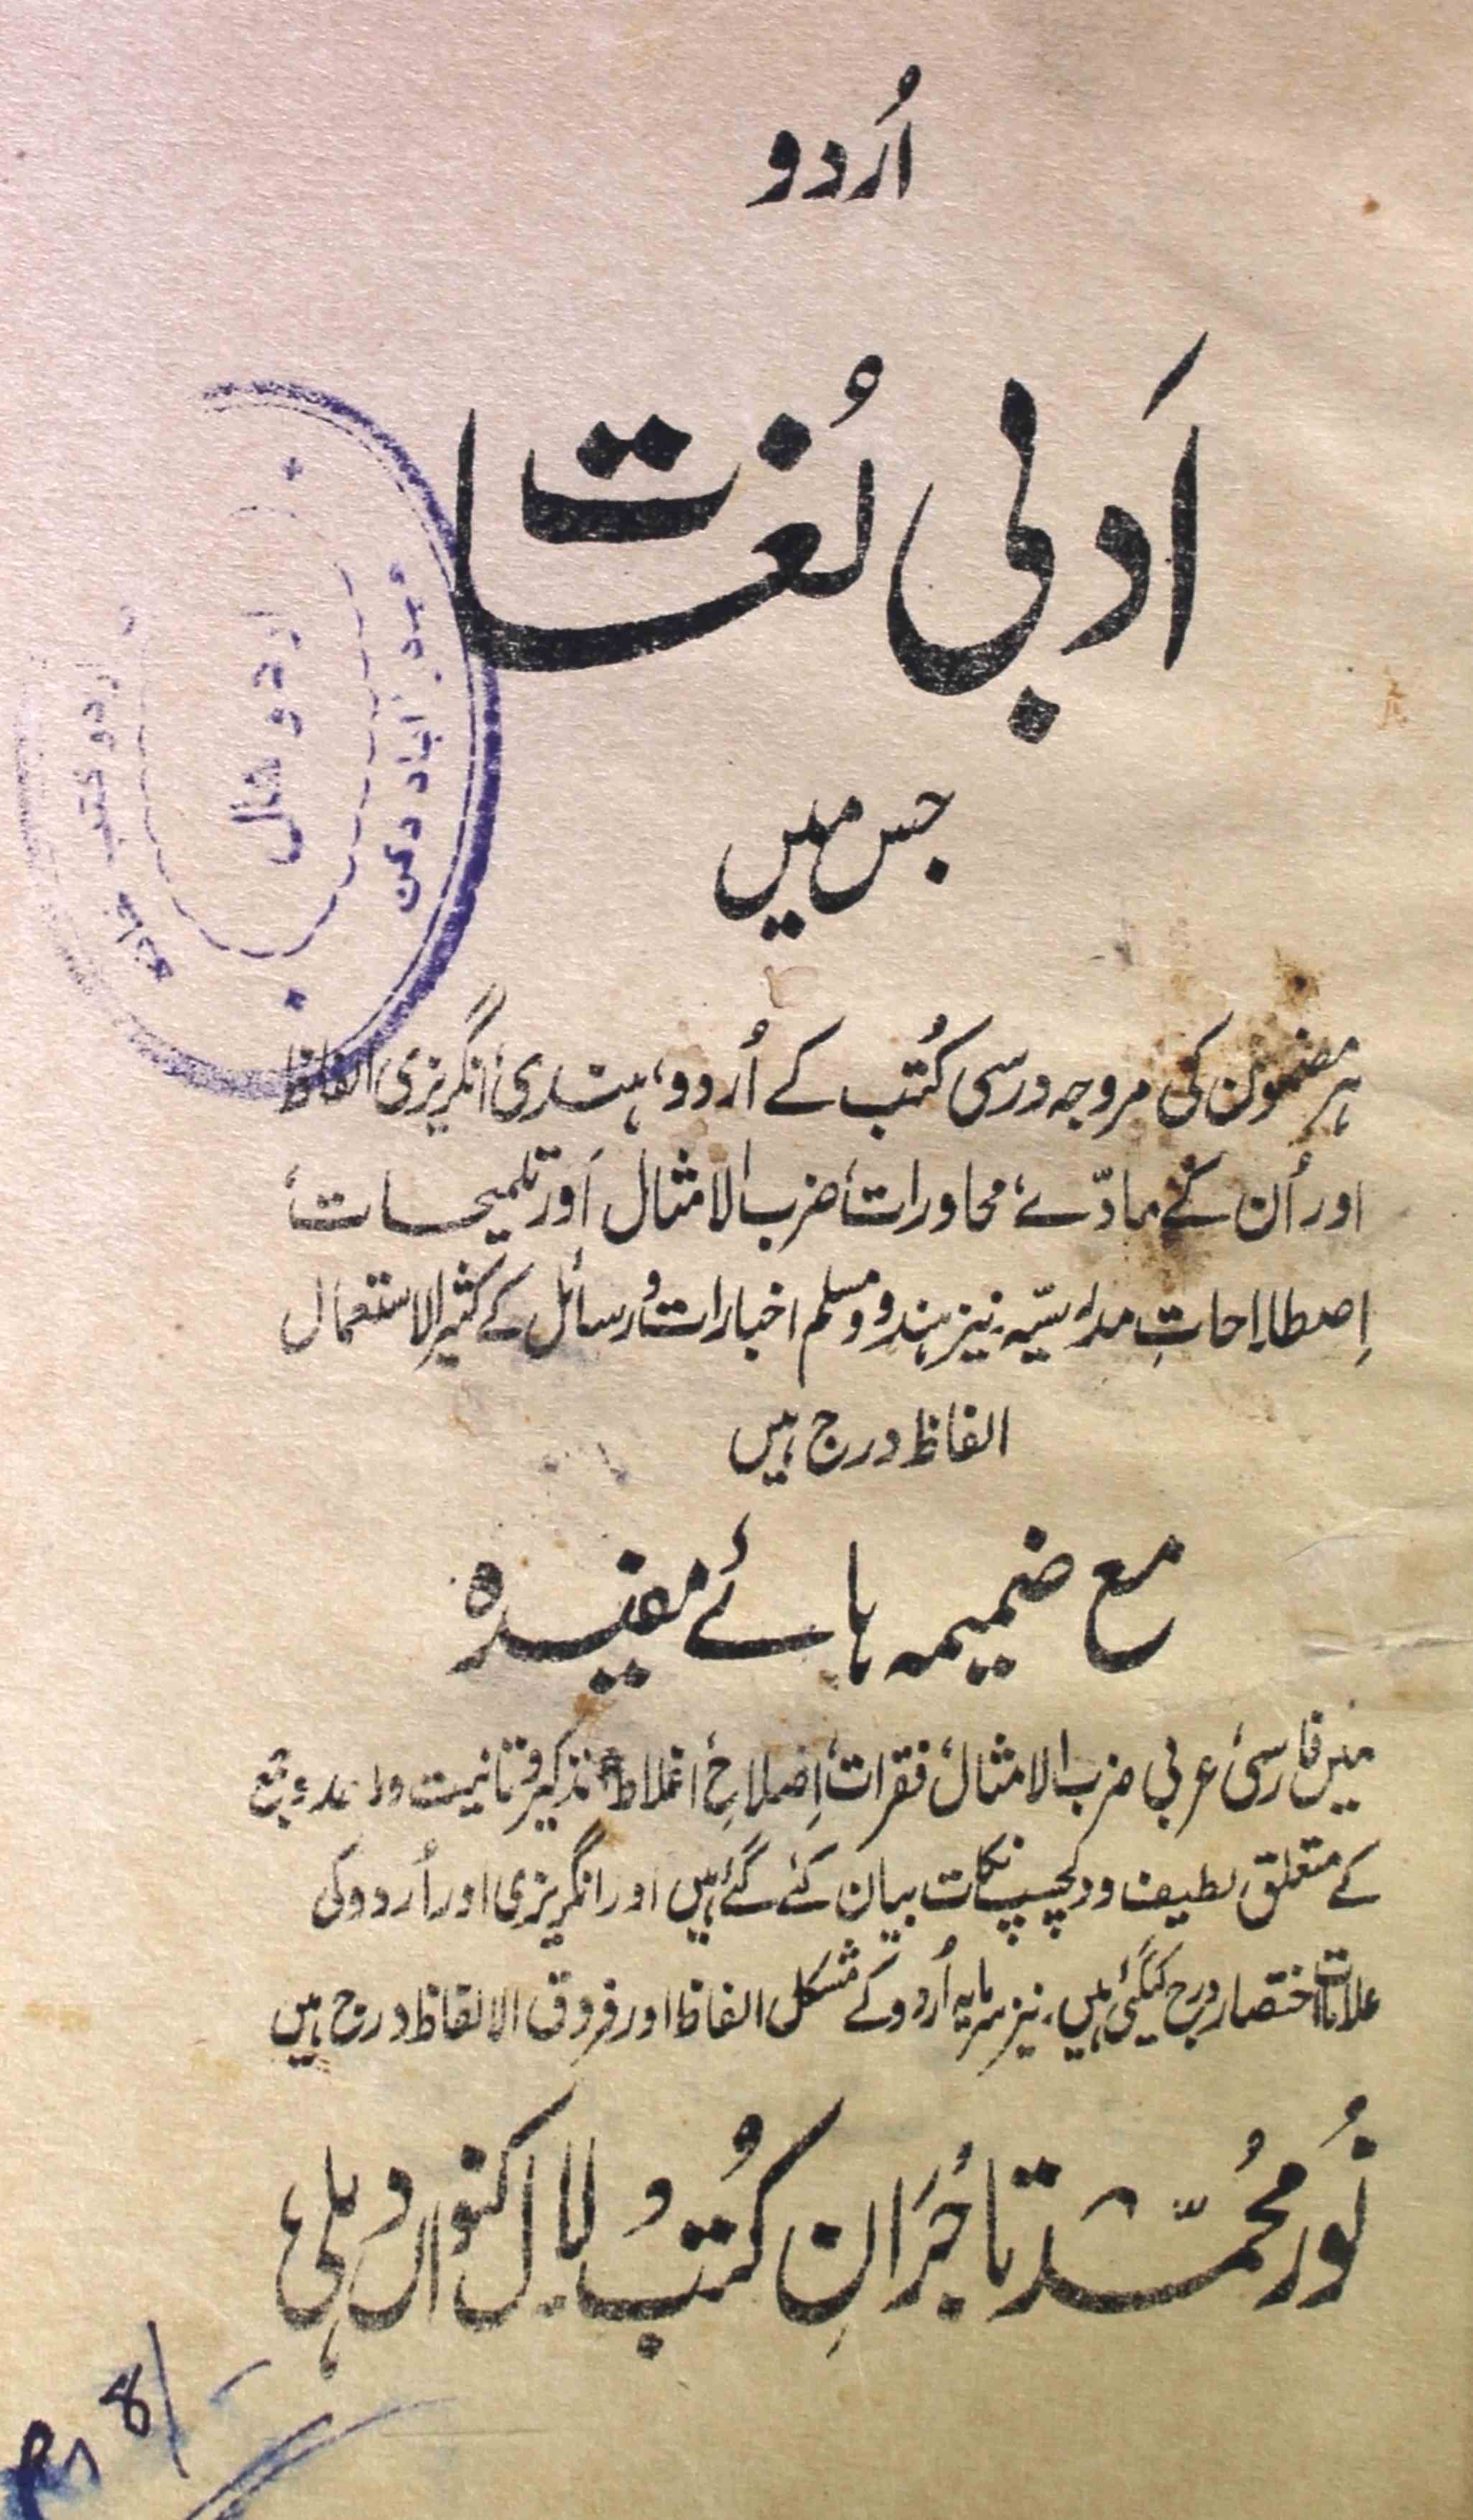 اُردو
اَدبی لُغت
جس میں
ہر مضمون کی مروجہ درسی کُتب کے اُردو، ہندی، انگریزی الفاظ
اور اُن کے مادّے، محاورات، ضرب الامثال اَور تلمیحات،
اِصطلاحاتِ مدرسیّہ نیز ہندو و مسلم اخبارات و رسائل کے کثیر الاستعمال
الفاظ درج ہیں
مع ضمیمہ ہائے مفیدہ
میں فارسی، عربی ضرب الامثال، فقرات، اِصلاحِ اغلاط، تذکیر و تانیث واحد و جمع
کے متعلق لطیف و دلچسپ نکات بیان کئے گئے ہیں اور انگریزی اور اُردو کی
علامات اختصار درج کیگئی ہیں، نیز سرمایہ اُردو کے مشکل الفاظ اور فروق الالفاظ درج ہیں
نُور محُمّد تاجُرَانِ کُتُب لال کنواں دہلی،
اردو ہال
حیدرآباد دکن
اردو کتب خانہ
Rs 8/-